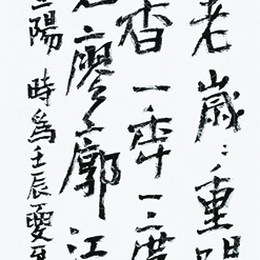 老歲々重
香一年一度
廖廓江
陽 時為壬辰夏